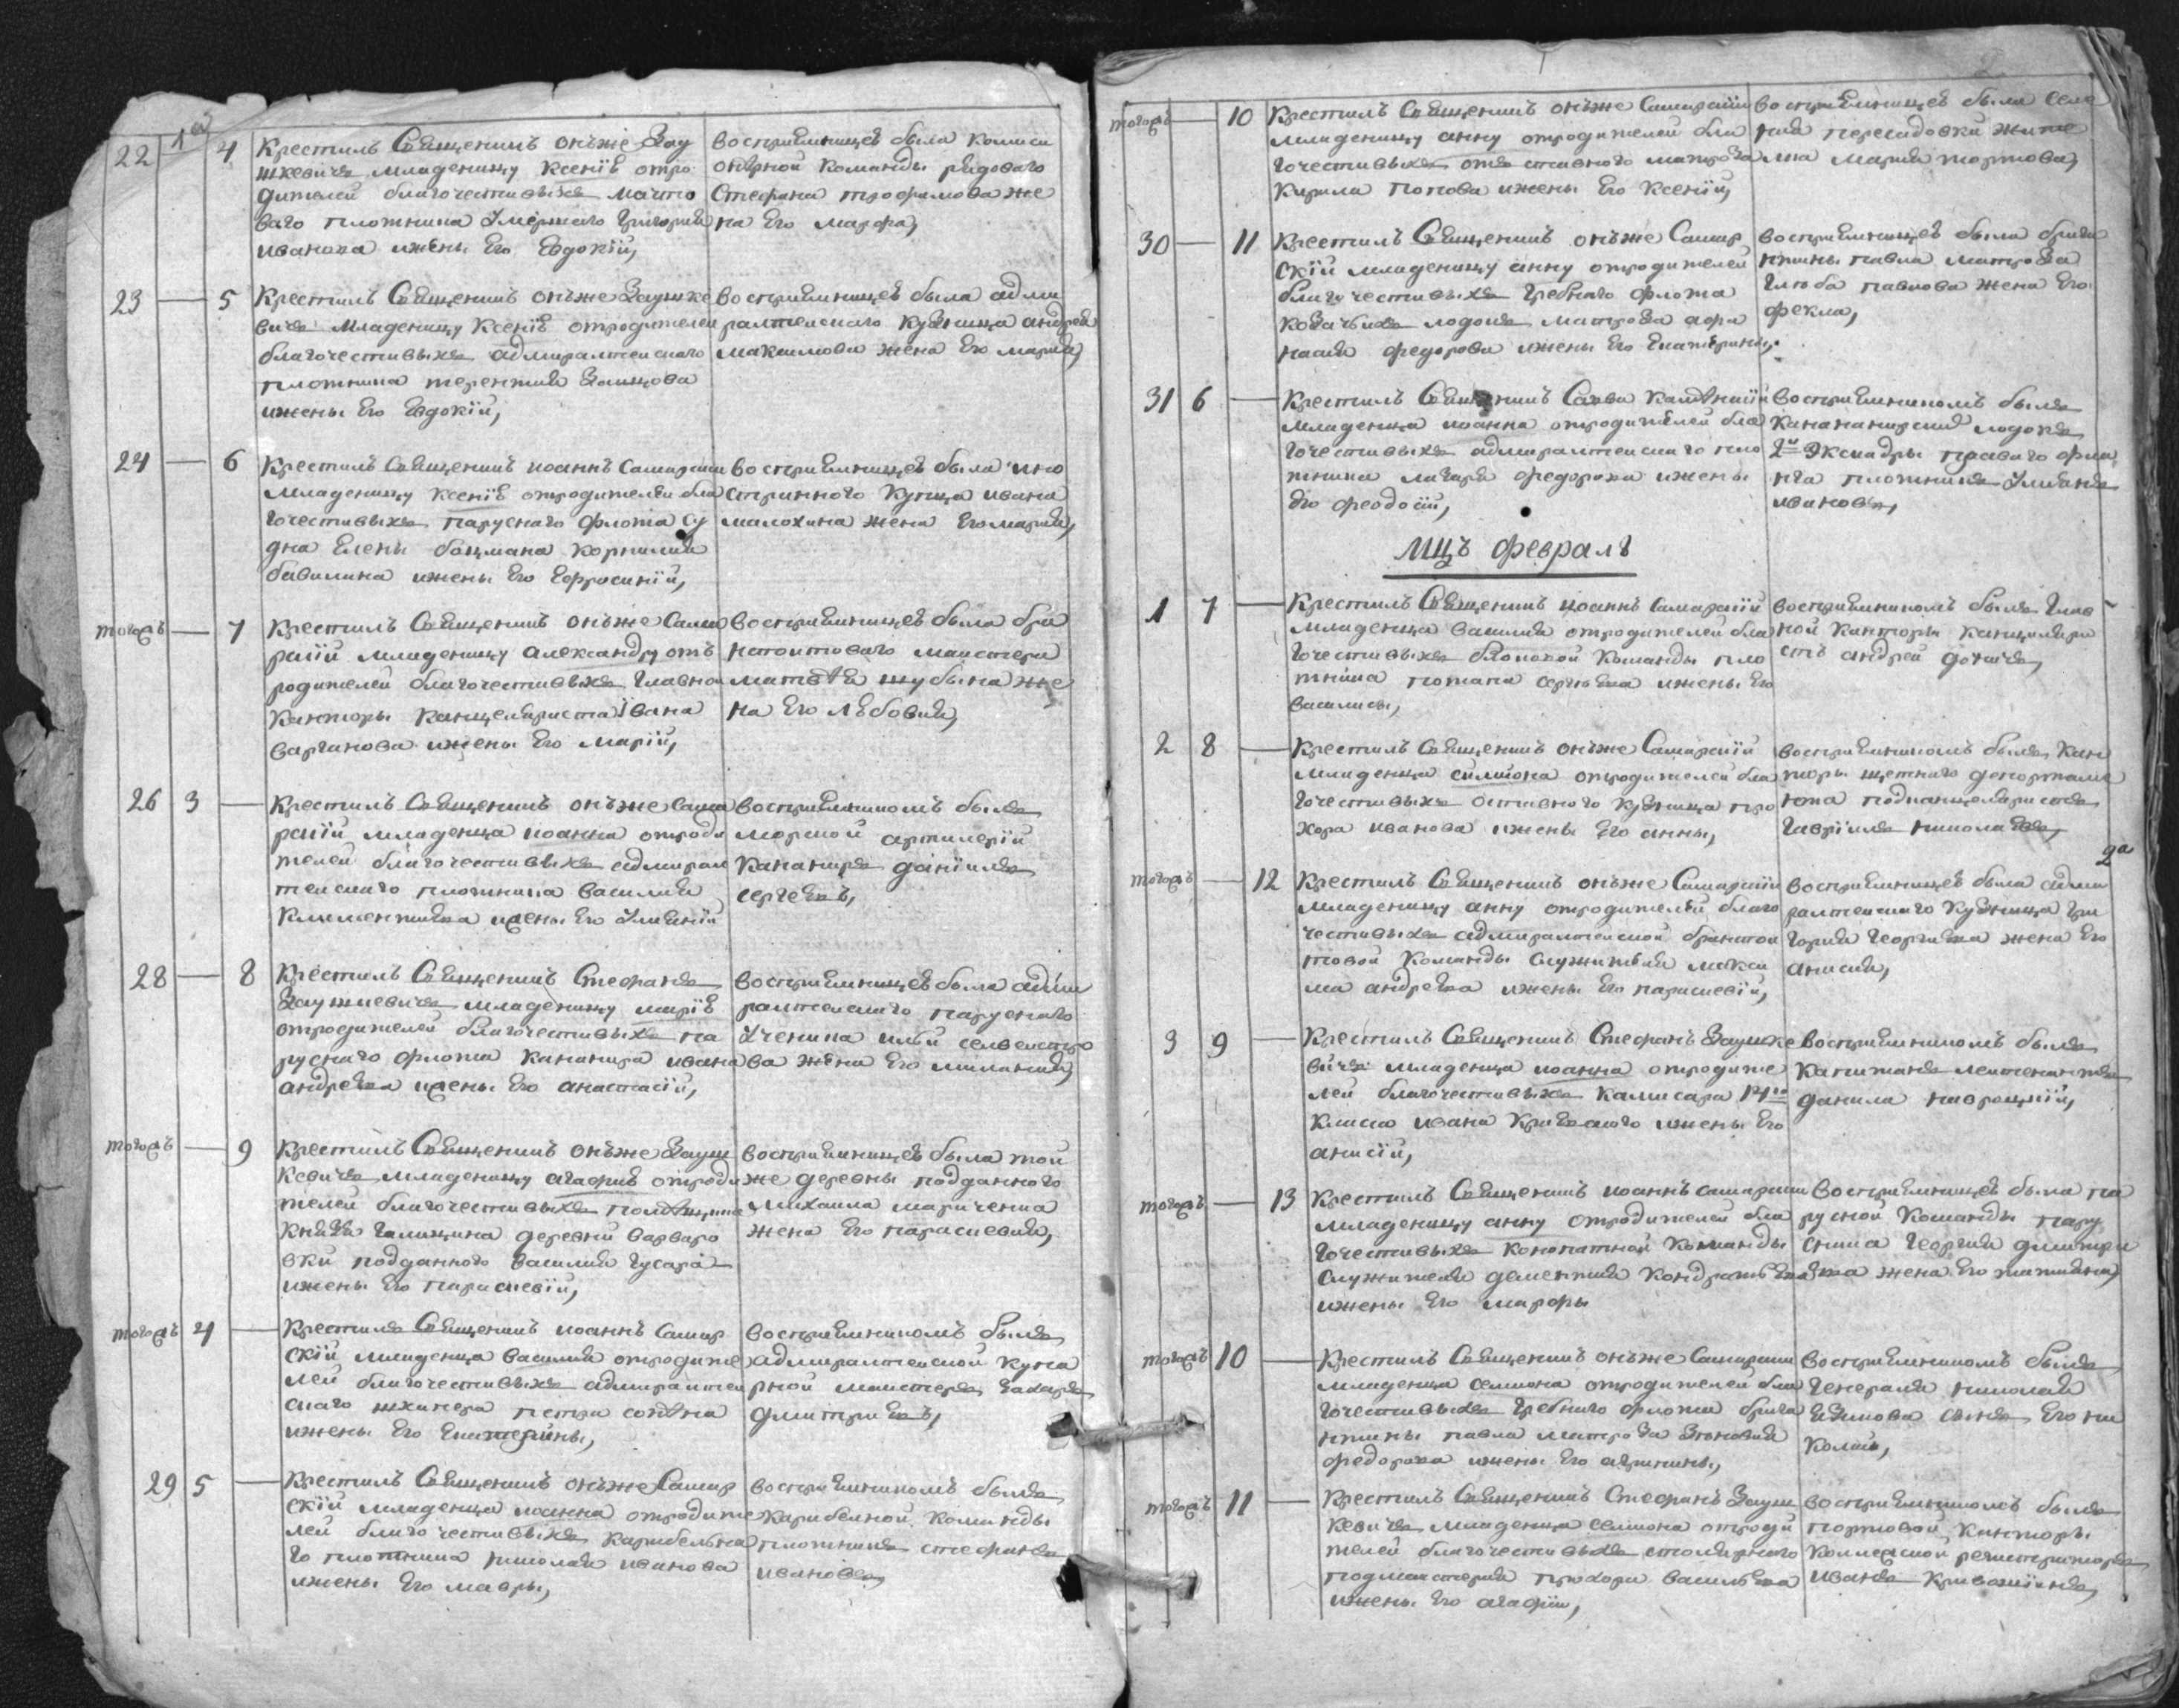 22 — 4 Крестилъ Священникъ онъже Зау
шкевичъ младеницу ксенїю отро
дителей благочестивыхъ мачто
ваго плотника умершаго григория
иванова ижены Его Евдокїи,
воспрїемницею была комиси
онерной команды рядоваго
Стефана трофимова же
на Его марфа,
23 — 5 Крестилъ Священникъ онъже Заушке
вичъ младеницу Ксенїю отродителей
благочестивыхъ адмиралтеискаго
плотника терентия
ижены Его Евдокїи,
воспрїемницею была адми
ралтеискаго кузнеца андрея
максимова жена Его мария,
24 — 6 Крестилъ Священникъ иоаннъ Самарски
младеницу ксенїю отродителей бла
гочестивыхъ паруснаго флота су
дна Елены боцмана корнилия
бавилина ижены Его Ефросинїи,
воспрїемницею была ино
страннаго купца ивана
малохина жена Его мария,
тогожъ — 7 Крестилъ Священникъ онъже Сама
рскїй младеницу александру отъ
родителей благочестивыхъ главной
канторы канцеляриста Ивана
варганова ижены Его марїи,
воспрїемницею была бри
матвея шубына же
на Его любовия,
26 3 — Крестилъ Священникъ онъже Сама
рскїй младенца иоанна отроди
телей благочестивыхъ адмирал
теискаго плотника василия
климентиева ижены Его улиянїи
воспрїемникомъ былъ
морской артилерїи
канониръ данїилъ
сергеевъ,
28 — 8 Крестилъ Священникъ Стефанъ
Заушкевичъ младеницу марїю
отродителей благочестивыхъ па
руснаго флота канонира ивана
андреева ижены Его анастасїи,
воспрїемницею была адми
ралтеискаго паруснаго
ученика илїи селвестро
ва жена Его милания,
тогожъ — 9 Крестилъ Священникъ онъже Зауш
кевичъ младеницу агафию отроди
телей благочестивыхъ помещика
князя галицина деревни варваро
вки подданного василия гусара
ижены Его параскевїи,
воспрїемницею была той
же деревны подданного
михаила мариченка
жена Его параскевия,
тогожъ 4 — Крестилъ Священникъ иоаннъ Самар
скїй младенца василия отродите
лей благочестивыхъ адмиралтеи
скаго шхипера петра
ижены Его Екатерины,
воспрїемникомъ былъ
адмиралтеиской купо
рной маистеръ захаръ
дмитриевъ,
29 5 — Крестилъ Священникъ онъже Самар
скїй младенца иоанна отродите
лей благочестивыхъ карабельна
го плотника николая иванова
ижены Его мавры,
воспрїемникомъ былъ
карабелной команды
плотникъ стефанъ
ивановъ,
тогожъ — 10 Крестилъ Священникъ онъже Самарскїй
младеницу анну отродителей бла
гочестивыхъ отъ ставного матроза
кирила попова ижены Его ксенїи,
воспрїемницею была селе
ния пересадовки жите
лка мария портова,
30 — 11 Крестилъ Священникъ онъже Самар
скїй младеницу анну отродителей
благочестивыхъ гребнаго флота
козачьихъ лодокъ матроза афа
насия федорова ижены Его Екатерины,
воспрїемницею была брига
нтины павла матроза
глеба павлова жена Его
фекла,
31 6 — Крестилъ Священникъ Савва
младенца иоанна отродителей бла
гочестивыхъ адмиралтеискаго пло
тника лазаря федорова ижены
Его феодосїи,
воспрїемникомъ былъ
лодокъ
2й Эскадры праваго фла
нга плотникъ
ивановъ,
мцъ февраль
1 7 — Крестилъ Священникъ иоаннъ Самарскїй
младенца василия отродителей бла
гочестивыхъ блоковой команды пло
тника потапа сергеева ижены Его
василисы,
воспрїемникомъ былъ глав
ной канторы канцеляри
стъ андрей
2 8 — Крестилъ Священникъ онъже Самарскїй
младенца симиона отродителей бла
гочестивыхъ оставного кузнеца про
хора иванова ижены Его анны,
воспрїемникомъ былъ кан
торы щетного депортаме
нта подканцеляристъ
гаврїилъ николаевъ,
2а
тогожъ — 12 Крестилъ Священникъ онъже Самарскїй
младеницу анну отродителей благо
честивыхъ адмиралтеиской брантои
товой команды служителя макси
ма андреева ижены Его параскевїи,
воспрїемницею была адми
ралтеискаго кузнеца гри
гория георгиева жена Его
анисия,
3 9 — Крестилъ Священникъ Стефанъ Заушке
вичъ младенца иоанна отродите
лей благочестивыхъ камисара 14го
класса ивана ижены Его
анисїи,
воспрїемникомъ былъ
капитанъ леитенантъ
данила навроцкїй,
тогожъ — 13 Крестилъ Священникъ иоаннъ самарскии
младеницу анну отродителей бла
гочестивыхъ конопатной команды
служителя дементия кондратьева
ижены Его марфы
воспрїемницею была па
русной команды пару
сника георгия дмитри
ева жена Его татияна,
тогожъ 10 — Крестилъ Священникъ онъже Самарски
младенца семиона отродителей бла
гочестивыхъ гребнаго флота брига
нтины павла матроза зиновия
федорова ижены Его агрипины,
воспрїемникомъ былъ
генерала николая
сынъ Его ни
колай,
тогожъ 11 — Крестилъ Священникъ Стефанъ Зауш
кевичъ младенца семиона отроди
телей благочестивыхъ столярного
подмастерия прохора васильева
ижены Его агафїи,
воспрїемникомъ былъ
портовой канторы
колежской регистраторъ
иванъ